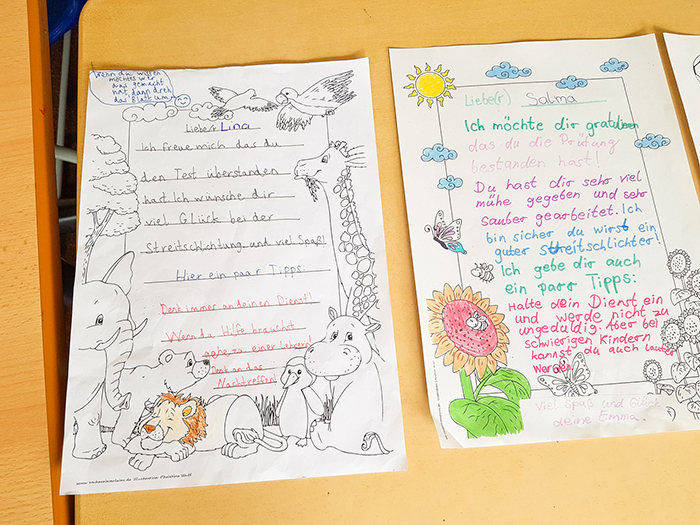 Wenn du wissen
möchtes wer
das gemacht
hat, dann dreh
das Blatt um
Liebe/r Lina
Ich freue mich das du
den Test überstanden
hast. Ich wünsche dir
viel Glück bei der
Streitschlichtung und viel Spaß!
Hier ein paar Tipps:
Denk immer an deinen Dienst!
Wenn du Hilfe brauchst
gehe zu einer Lehrerin
Denk an das
Nachtreffen!
Liebe(r) Salma
Ich möchte dir gratulieren
das du die Prüfung
bestanden hast!
Du hast dir sehr viel
mühe gegeben und sehr
sauber gearbeitet. Ich
bin sicher du wirst ein
guter Streitschlichter!
Ich gebe dir auch
ein parr Tipps:
Halte dein Dienst ein
und werde nicht zu
ungeduldig. Aber bei
schwierigen Kindern
kannst du auch lauter
werden
Viel Spaß und Glück
deine Emma